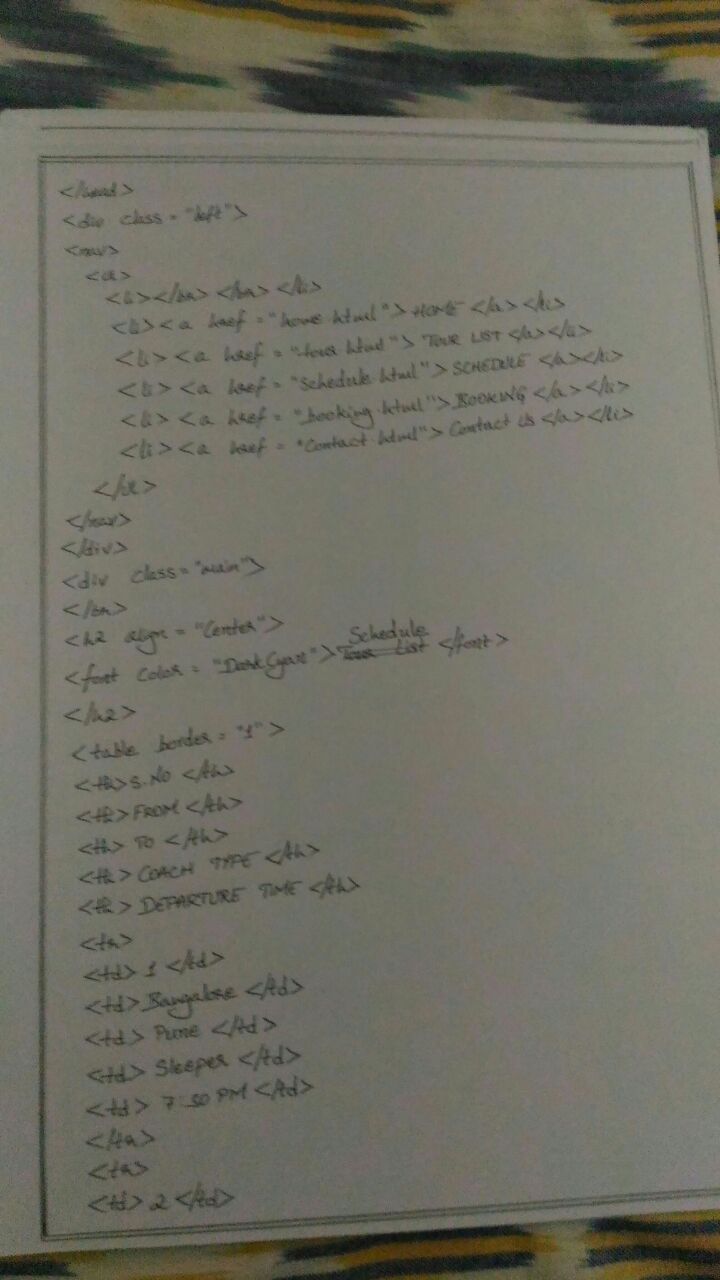 </head>
<div class = "left">
<nav>
<ul>
<li></br> </br> </li>
<li><a href = "home.html"> HOME </a></li>
<li><a href = "tour.html"> TOUR LIST </a></li>
<li><a href = "Schedule.html"> SCHEDULE </a></li>
<li><a href = "booking.html"> BOOKING </a></li>
<li><a href = "Contact.html"> Contact Us </a></li>
</ul>
</nav>
</div>
<div class = "main">
</br>
<h2 align = "Center">
<font color = "DarkCyan"> Schedule </font>
</h2>
<table border = "1" >
<th> S.NO </th>
<th> FROM </th>
<th> TO </th>
<th> COACH TYPE </th>
<th> DEPARTURE TIME </th>
<tr>
<td> 1 </td>
<td> Bangalore </td>
<td> Pune </td>
<td> Sleeper </td>
<td> 7:30 PM </td>
</tr>
<tr>
<td> 2 </td>